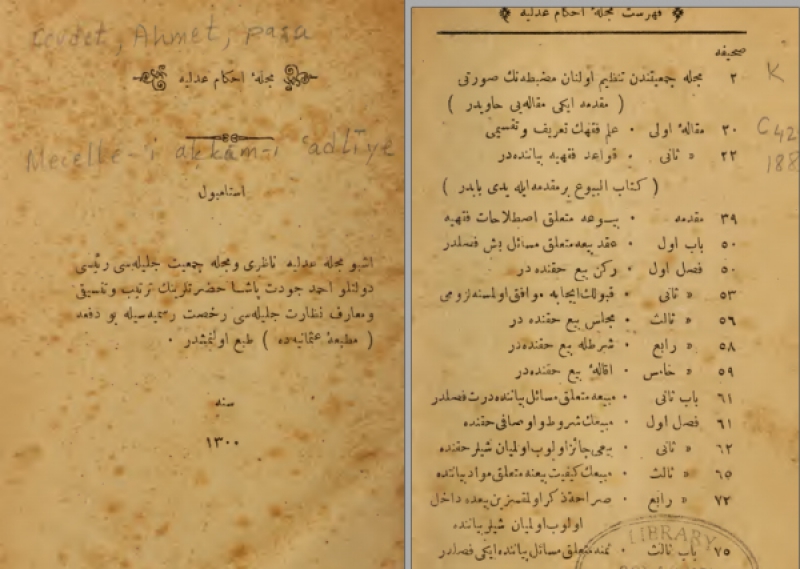 cevdet, Ahmet, paşa
مجلهٔ احكام عدليه
Mecelle-'i aḥkâm-ı 'adlīye
استانبول
اشبو مجله عدليه ناظری ومجله جمعيت جليله‌سی رئيسی
دولتلو احمد جودت پاشا حضرتلرينك ترتيب وتنسيق
ومعارف نظارت جليله‌سی رخصت رسميه‌سيله بو دفعه
( مطبعهٔ عثمانيه‌ده ) طبع اولنمشدر .
سنه
١٣٠٠
فهرست مجلهٔ احكام عدليه
صحيفه
٢ مجله جمعيتندن تنظيم اولنان مضبطه‌نك صورتی
( مقدمه ايكی مقاله‌يی حاويدر )
٢٠ مقالهٔ اولی . علم فقهك تعريف وتقسيمی
٢٢ » ثانی . قواعد فقهيه بياننده‌در
( كتاب البيوع بر مقدمه ايله يدی بابدر )
٣٩ مقدمه . بيوعه متعلق اصطلاحات فقهيه
٥٠ باب اول . عقد بيعه متعلق مسائل بش فصلدر
٥٠ فصل اول . ركن بيع حقنده در
٥٣ » ثانی . قبولك ايجابه موافق اولمسنه لزومی
٥٦ » ثالث . مجلس بيع حقنده در
٥٨ » رابع . شرطله بيع حقنده‌در
٥٩ » خامس . اقالهٔ بيع حقنده‌در
٦١ باب ثانی . مبيعه متعلق مسائل بياننده درت فصلدر
٦١ فصل اول . مبيعك شروط و اوصافی حقنده
٦٢ » ثانی . بيعی جائز اولوب اولميان شيلر حقنده
٦٥ » ثالث . مبيعك كيفيت بيعنه متعلق مواد بياننده
٧٢ » رابع . صراحة ذكر اولنمقسزين بيعده داخل
اولوب اولميان شيلر بياننده
٧٥ باب ثالث . ثمنه متعلق مسائل بياننده ايكی فصلدر
K
C42
188
LIBRARY